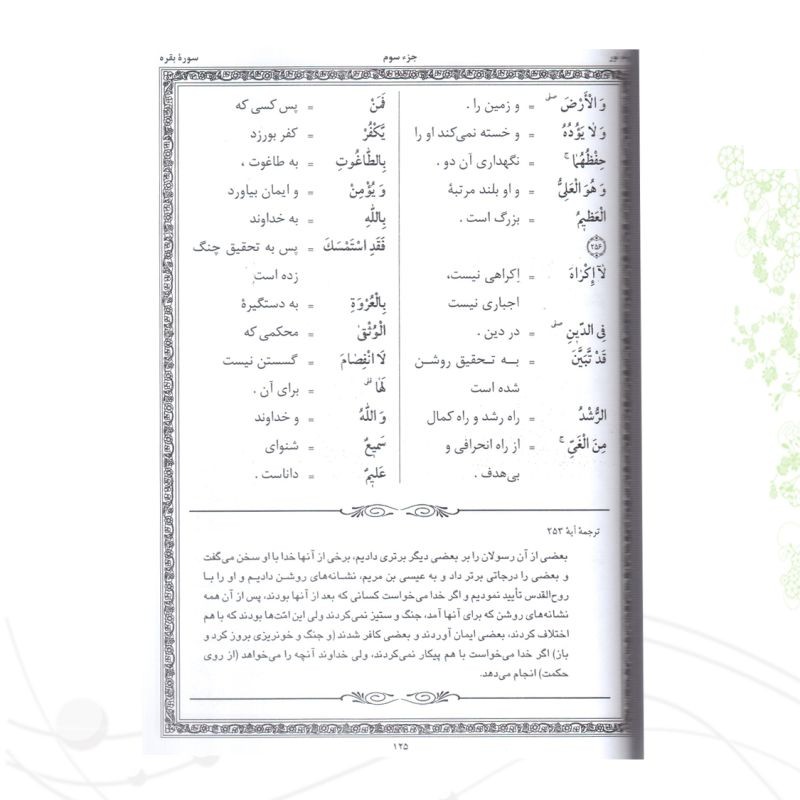 سورهٔ بقره
جزء سوم
وَ الْأَرْضَ صلی = و زمین را .
وَ لَا یَؤُدُهُ = و خسته نمی‌کند او را
حِفْظُهُمَا ج = نگهداری آن دو .
وَ هُوَ الْعَلِیُّ = و او بلند مرتبهٔ
الْعَظِیمُ = بزرگ است .
۲۵۶
لَآ إِکْرَاهَ = اِکراهی نیست،
اجباری نیست
فِی الدِّینِ صلی = در دین .
قَدْ تَّبَیَّنَ = به تحقیق روشن
شده است
الرُّشْدُ = راه رشد و راه کمال
مِنَ الْغَیِّ ج = از راه انحرافی و
بی‌هدف .
فَمَنْ = پس کسی که
یَّکْفُرْ = کفر بورزد
بِالطَّاغُوتِ = به طاغوت ،
وَ یُؤْمِنْ = و ایمان بیاورد
بِاللَّهِ = به خداوند
فَقَدِ اسْتَمْسَكَ = پس به تحقیق چنگ
زده است
بِالْعُرْوَةِ = به دستگیرهٔ
الْوُثْقیٰ = محکمی که
لَا انْفِصَامَ = گسستن نیست
لَهَا قلی = برای آن .
وَ اللَّهُ = و خداوند
سَمِیعٌ = شنوای
عَلِیمٌ = داناست .
ترجمهٔ آیهٔ ۲۵۳
بعضی از آن رسولان را بر بعضی دیگر برتری دادیم، برخی از آنها خدا با او سخن می‌گفت
و بعضی را درجاتی برتر داد و به عیسی بن مریم، نشانه‌های روشن دادیم و او را با
روح‌القدس تأیید نمودیم و اگر خدا می‌خواست کسانی که بعد از آنها بودند، پس از آن همه
نشانه‌های روشن که برای آنها آمد، جنگ و ستیز نمی‌کردند ولی این امّت‌ها بودند که با هم
اختلاف کردند، بعضی ایمان آوردند و بعضی کافر شدند (و جنگ و خونریزی بروز کرد و
باز) اگر خدا می‌خواست با هم پیکار نمی‌کردند، ولی خداوند آنچه را می‌خواهد (از روی
حکمت) انجام می‌دهد.
۱۲۵